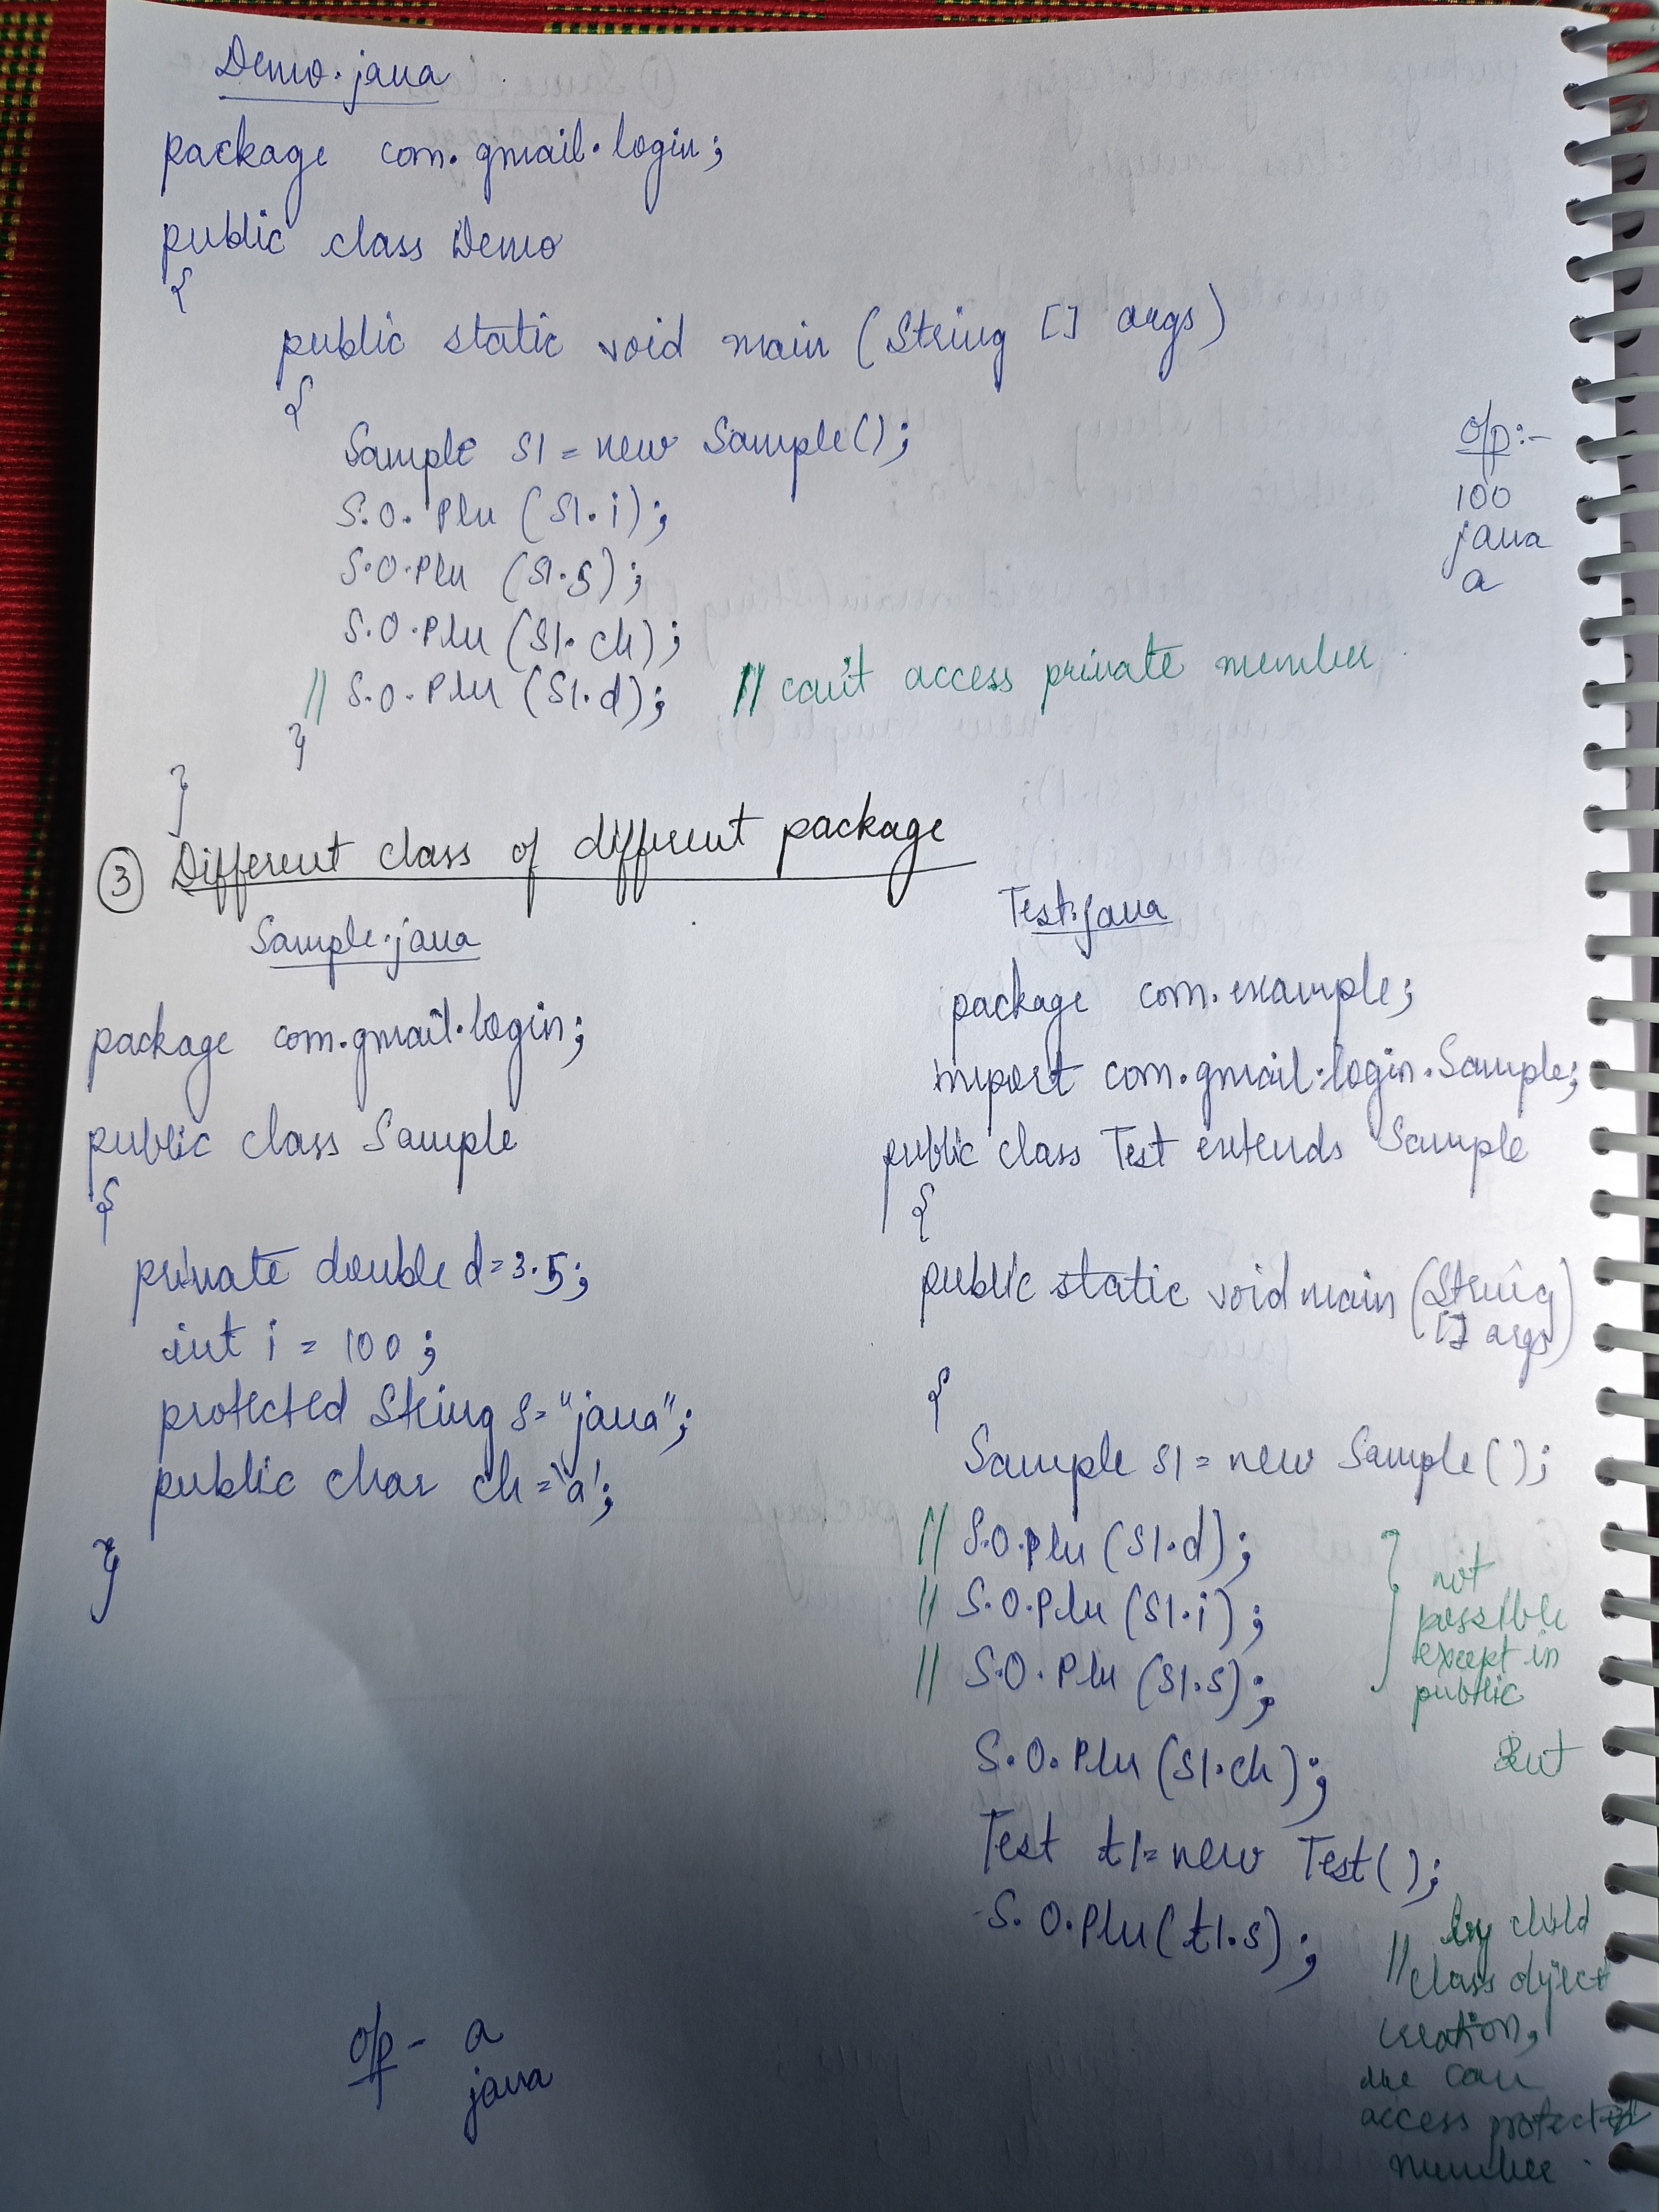 Demo.java
package com.gmail.login;
public class Demo
{
public static void main (String [] args)
{
Sample s1 = new Sample();
S.O.Pln (s1.i);
S.O.Pln (s1.s);
S.O.Pln (s1.ch);
// S.O.Pln (s1.d); // can't access private member
}
}
o/p:-
100
java
a
③ Different class of different package
Sample.java
package com.gmail.login;
public class Sample
{
private double d=3.5;
int i = 100;
protected String s="java";
public char ch='a';
}
Test.java
package com.example;
import com.gmail.login.Sample;
public class Test extends Sample
{
public static void main (String
[] args)
{
Sample s1 = new Sample();
// S.O.Pln (s1.d);
// S.O.Pln (s1.i);
// S.O.Pln (s1.s);
} not
possible
except in
public
S.O.Pln (s1.ch);
But
Test t1=new Test();
S.O.Pln(t1.s);
// by child
class object
creation,
we can
access protected
member.
o/p- a
java